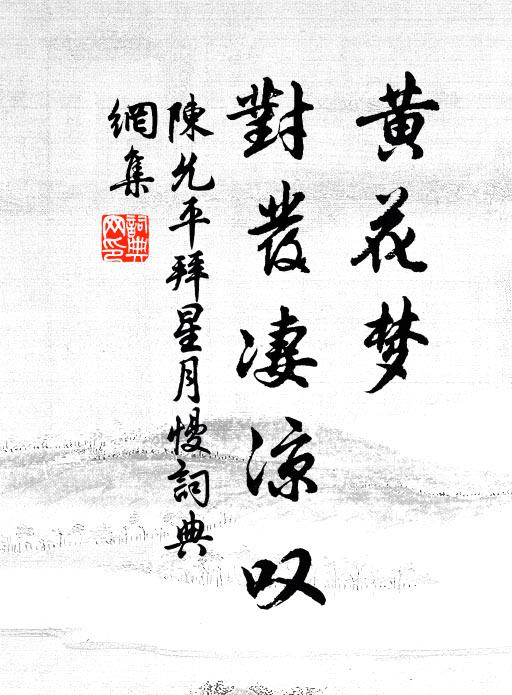 黄花梦
對發淒涼叹
陳允平拜星月慢詞典
網集
詞典网印